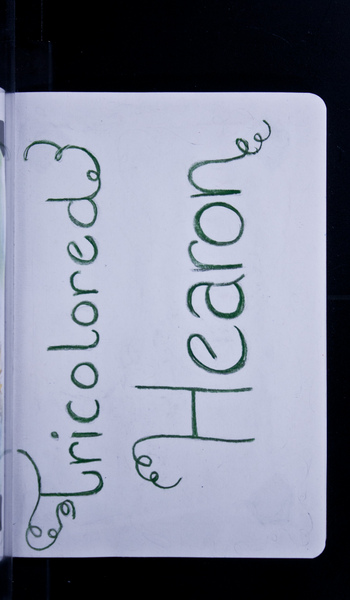 tricolored
Hearon